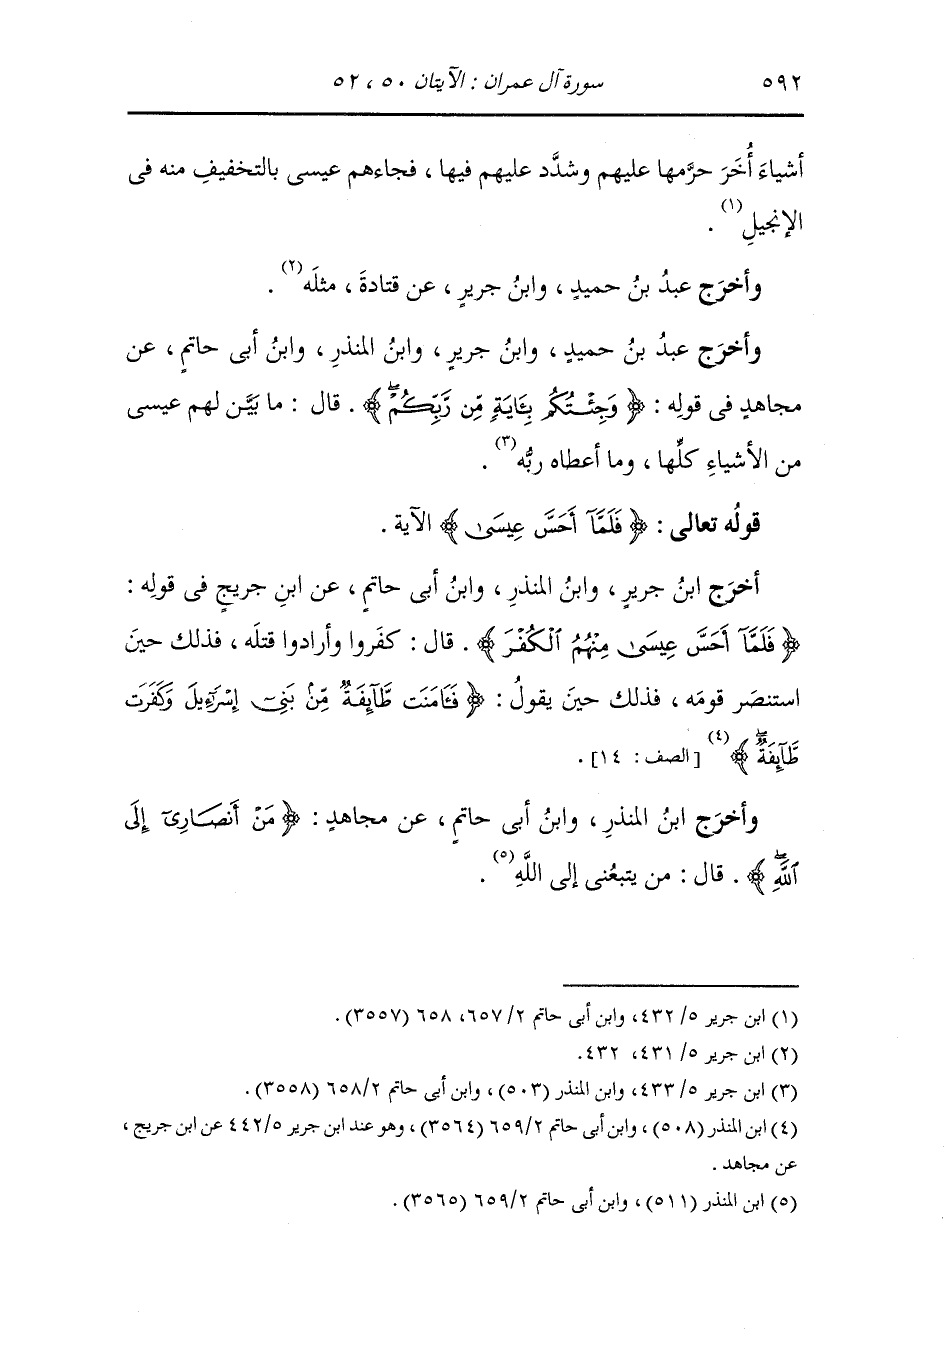 ٥٩٢ سورة آل عمران : الآيتان ٥٠ ، ٥٢
أشياءَ أُخَرَ حرَّمها عليهم وشدَّد عليهم فيها ، فجاءهم عيسى بالتخفيفِ منه فى
الإنجيلِ(١) .
وأخرَج عبدُ بنُ حميدٍ ، وابنُ جريرٍ ، عن قتادةَ ، مثلَه(٢) .
وأخرَج عبدُ بنُ حميدٍ ، وابنُ جريرٍ ، وابنُ المنذرِ ، وابنُ أبى حاتمٍ ، عن
مجاهدٍ فى قولِه : ﴿ وَجِئْتُكُم بِـَٔايَةٍ مِّن رَّبِّكُمْۖ ﴾ . قال : ما بيَّن لهم عيسى
من الأشياءِ كلِّها ، وما أعطاه ربُّه(٣) .
قولُه تعالى : ﴿ فَلَمَّآ أَحَسَّ عِيسَىٰ ﴾ الآية .
أخرَج ابنُ جريرٍ ، وابنُ المنذرِ ، وابنُ أبى حاتمٍ ، عن ابنِ جريجٍ فى قولِه :
﴿ فَلَمَّآ أَحَسَّ عِيسَىٰ مِنْهُمُ ٱلْكُفْرَ ﴾ . قال : كفَروا وأرادوا قتلَه ، فذلك حينَ
استنصَر قومَه ، فذلك حينَ يقولُ : ﴿ فَـَٔامَنَت طَّآئِفَةٌ مِّنۢ بَنِىٓ إِسْرَٰٓءِيلَ وَكَفَرَت
طَّآئِفَةٌۖ ﴾(٤) [الصف : ١٤] .
وأخرَج ابنُ المنذرِ ، وابنُ أبى حاتمٍ ، عن مجاهدٍ : ﴿ مَنْ أَنصَارِىٓ إِلَى
ٱللَّهِۖ ﴾ . قال : من يتبعُنى إلى اللَّهِ(٥) .
(١) ابن جرير ٥/ ٤٣٢، وابن أبى حاتم ٢/ ٦٥٧، ٦٥٨ (٣٥٥٧).
(٢) ابن جرير ٥/ ٤٣١، ٤٣٢.
(٣) ابن جرير ٥/ ٤٣٣، وابن المنذر (٥٠٣) ، وابن أبى حاتم ٢/ ٦٥٨ (٣٥٥٨) .
(٤) ابن المنذر (٥٠٨) ، وابن أبى حاتم ٢/ ٦٥٩ (٣٥٦٤) ، وهو عند ابن جرير ٥/ ٤٤٢ عن ابن جريج ،
عن مجاهد .
(٥) ابن المنذر (٥١١) ، وابن أبى حاتم ٢/ ٦٥٩ (٣٥٦٥) .